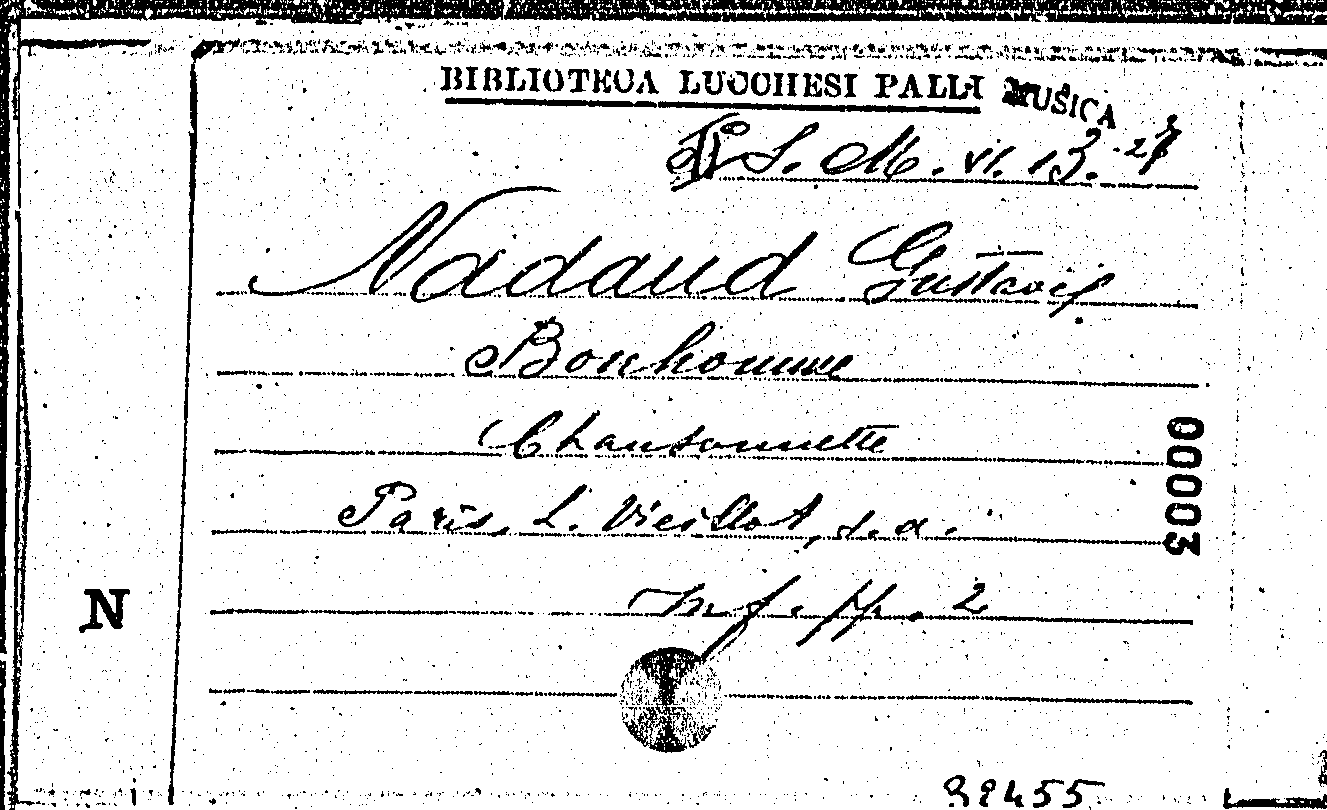 BIBLIOTECA LUCCHESI PALLI MUSICA
S. M. VI. 13.
Nadaud Gustave
Bonhomme
Chansonnette
Paris, L. Vieillot, s. a.
In f. pp. 2
00003
N
32455